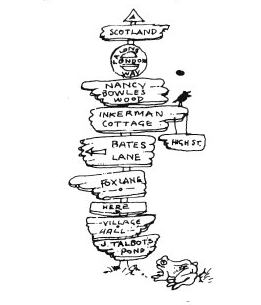 SCOTLAND
LONDON
WAY
NANCY
BOWLES
WOOD
INKERMAN
COTTAGE
HIGH ST.
BATES
LANE
FOX LANE
HERE
VILLAGE
HALL
J. TALBOTS
POND